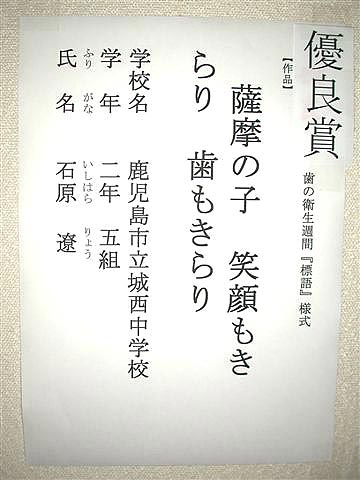 優良賞
歯の衛生週間『標語』様式
【作品】
薩摩の子　笑顔もき
らり　歯もきらり
学校名　鹿児島市立城西中学校
学年　二年　五組
ふり　がな　いしはら　りょう
氏名　石原　遼